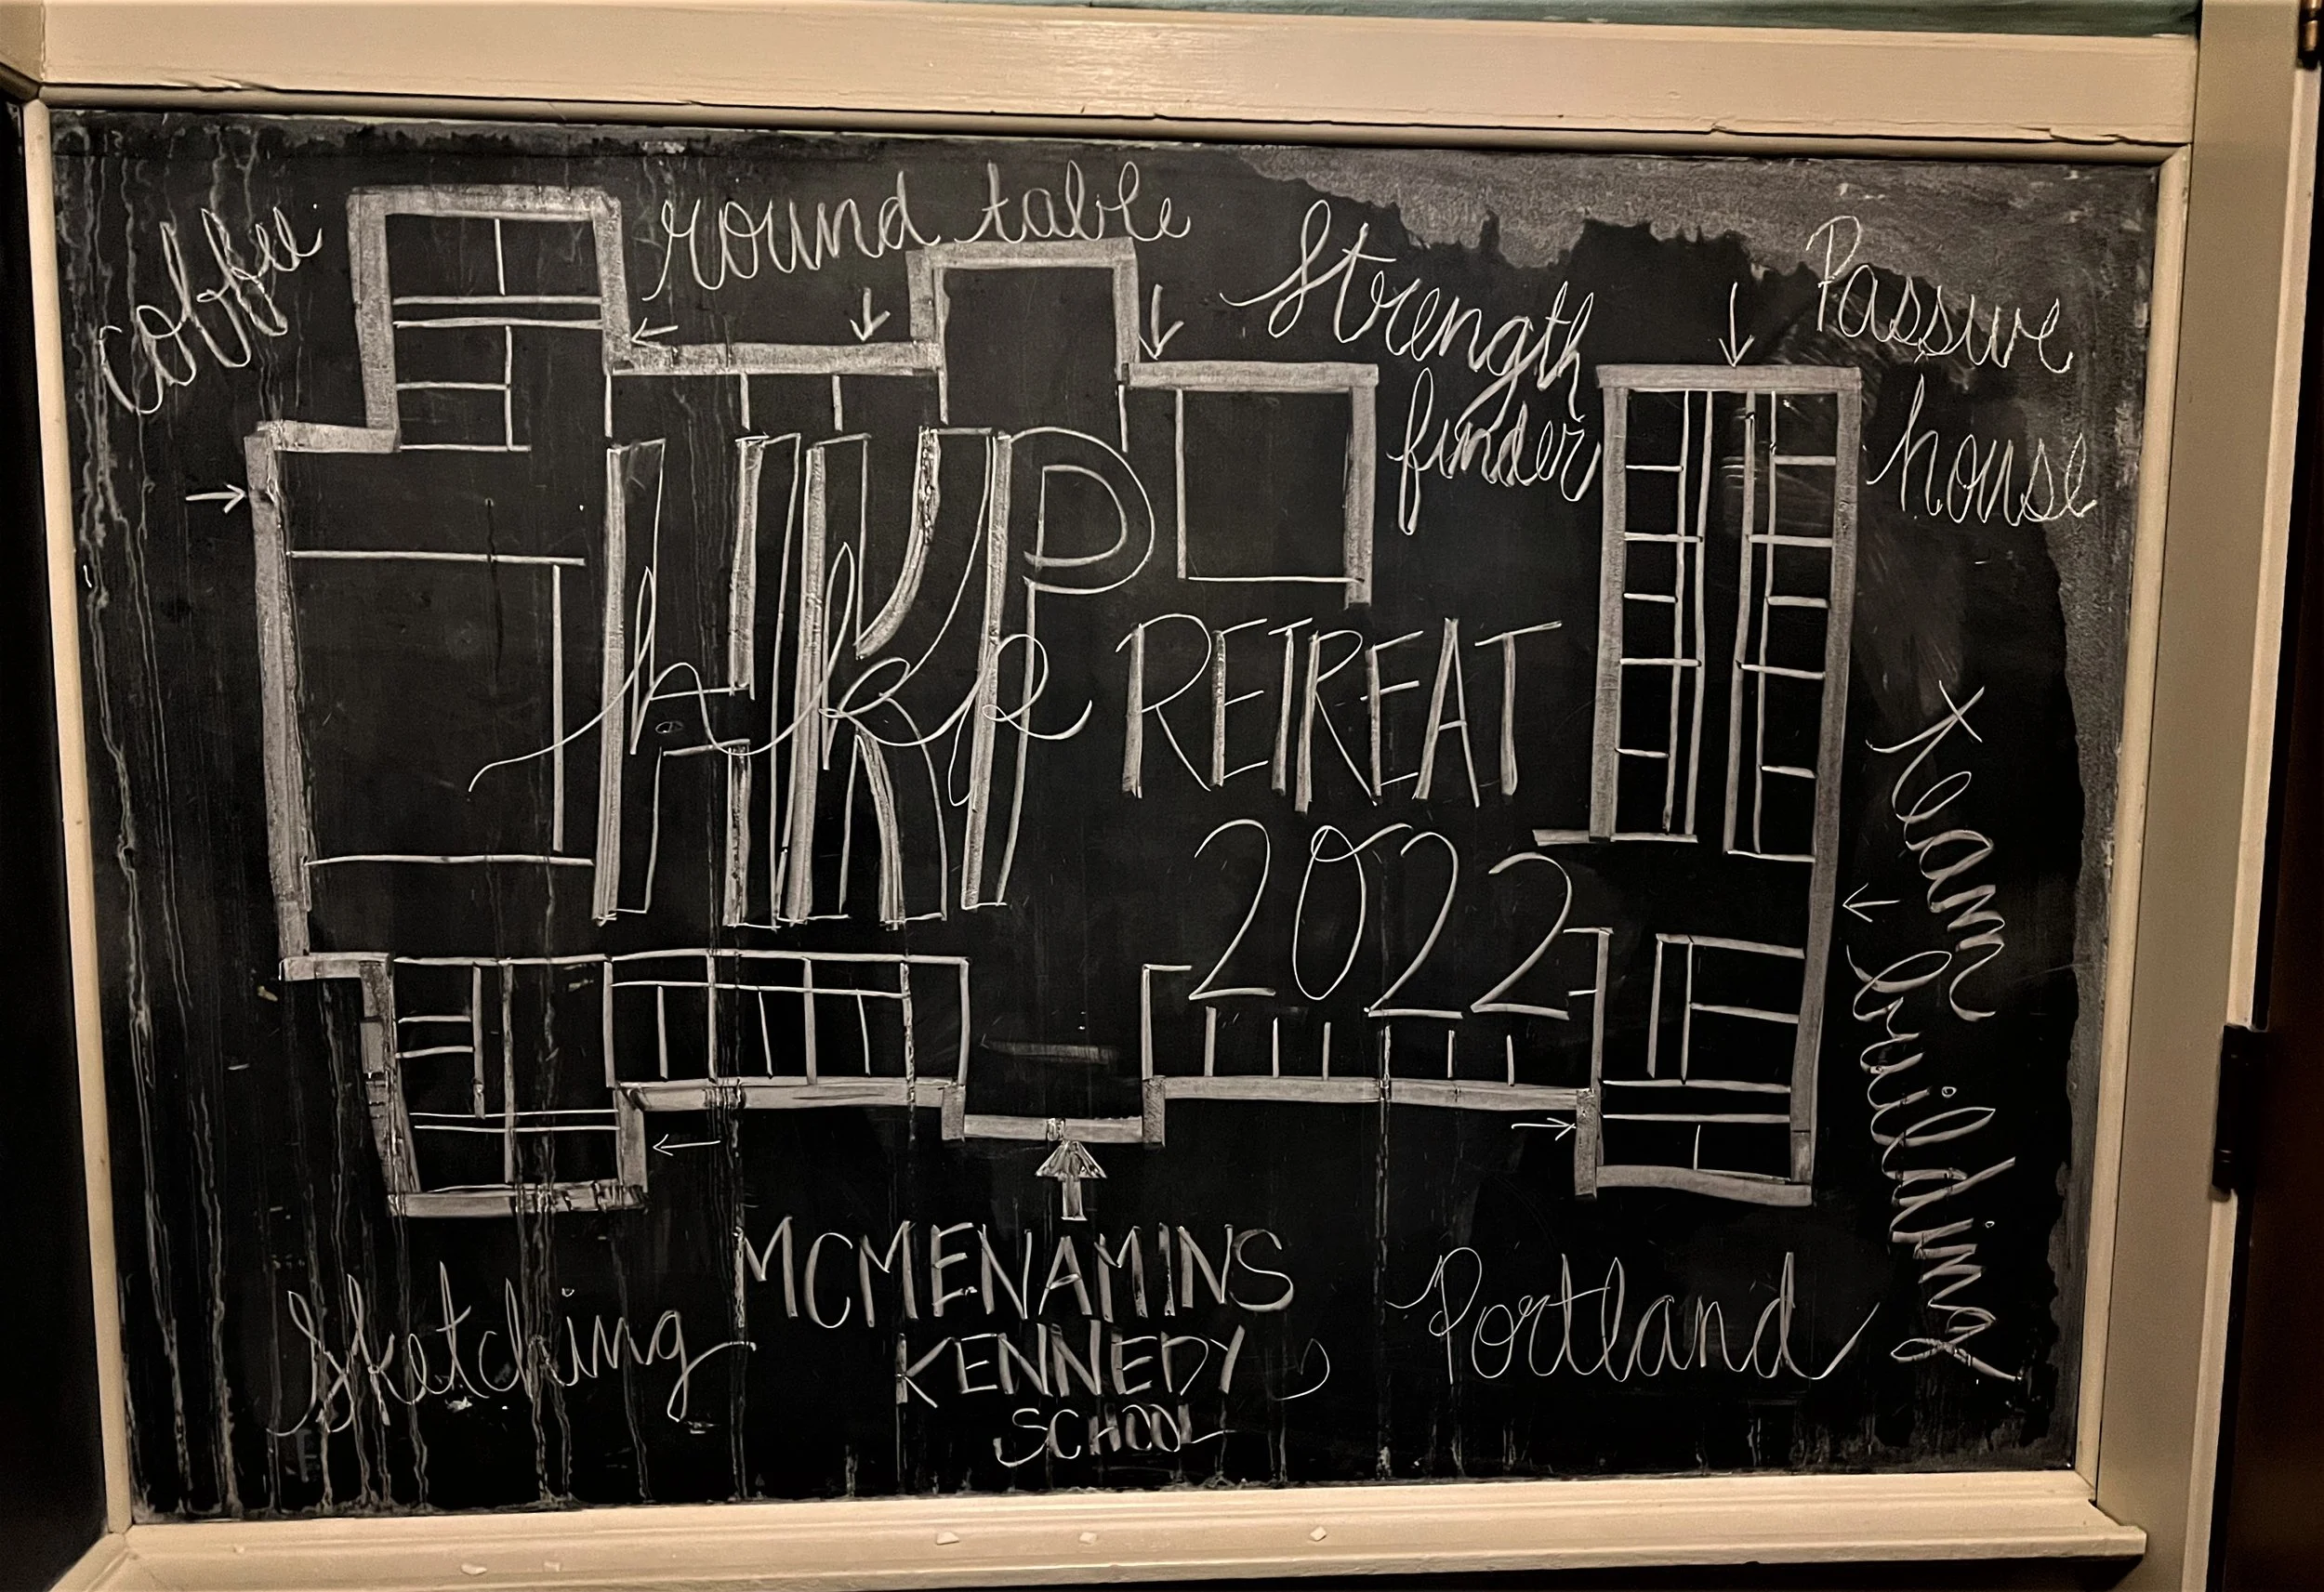 coffee
round table
Strength
finder
Passive
house
HKP
hkp
RETREAT
2022
team building
Sketching
MCMENAMINS
KENNEDY
SCHOOL
Portland